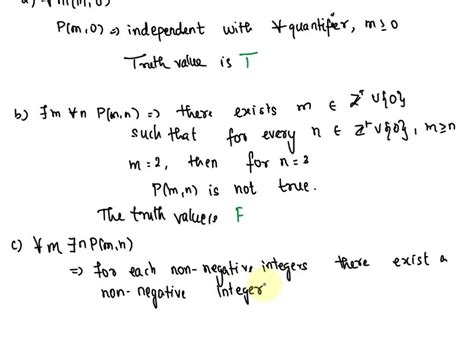 a) ∀m(m,0)
P(m,0) ⇒ independent with ∀ quantifier, m ≥ 0
Truth value is T
b) ∃m ∀n P(m,n) ⇒ there exists m ∈ Z⁺ ∪ {0}
such that for every n ∈ Z⁺ ∪ {0}, m ≥ n
m = 2, then for n = 2
P(m,n) is not true.
The truth value is F
c) ∀m ∃n P(m,n)
⇒ for each non-negative integers there exist a
non-negative integer